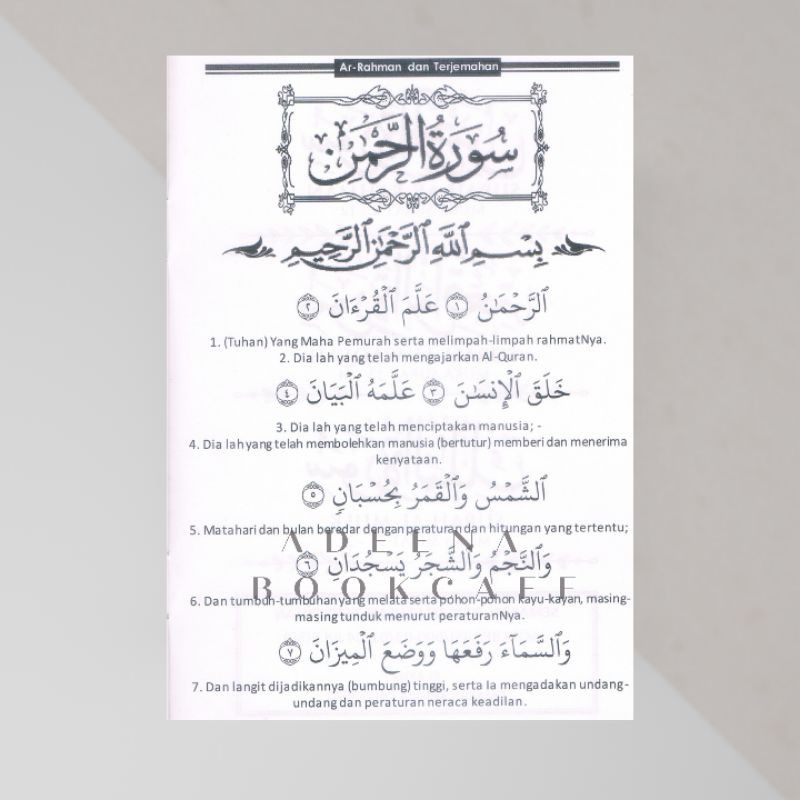 Ar-Rahman dan Terjemahan
سُورَةُ الرَّحْمٰن
بِسْمِ ٱللَّهِ ٱلرَّحْمَٰنِ ٱلرَّحِيمِ
ٱلرَّحْمَٰنُ ١ عَلَّمَ ٱلْقُرْءَانَ ٢
1. (Tuhan) Yang Maha Pemurah serta melimpah-limpah rahmatNya.
2. Dia lah yang telah mengajarkan Al-Quran.
خَلَقَ ٱلْإِنسَٰنَ ٣ عَلَّمَهُ ٱلْبَيَانَ ٤
3. Dia lah yang telah menciptakan manusia; -
4. Dia lah yang telah membolehkan manusia (bertutur) memberi dan menerima
kenyataan.
ٱلشَّمْسُ وَٱلْقَمَرُ بِحُسْبَانٍ ٥
5. Matahari dan bulan beredar dengan peraturan dan hitungan yang tertentu;
ADEENA
وَٱلنَّجْمُ وَٱلشَّجَرُ يَسْجُدَانِ ٦
BOOKCAFE
6. Dan tumbuh-tumbuhan yang melata serta pohon-pohon kayu-kayan, masing-
masing tunduk menurut peraturanNya.
وَٱلسَّمَآءَ رَفَعَهَا وَوَضَعَ ٱلْمِيزَانَ ٧
7. Dan langit dijadikannya (bumbung) tinggi, serta Ia mengadakan undang-
undang dan peraturan neraca keadilan.